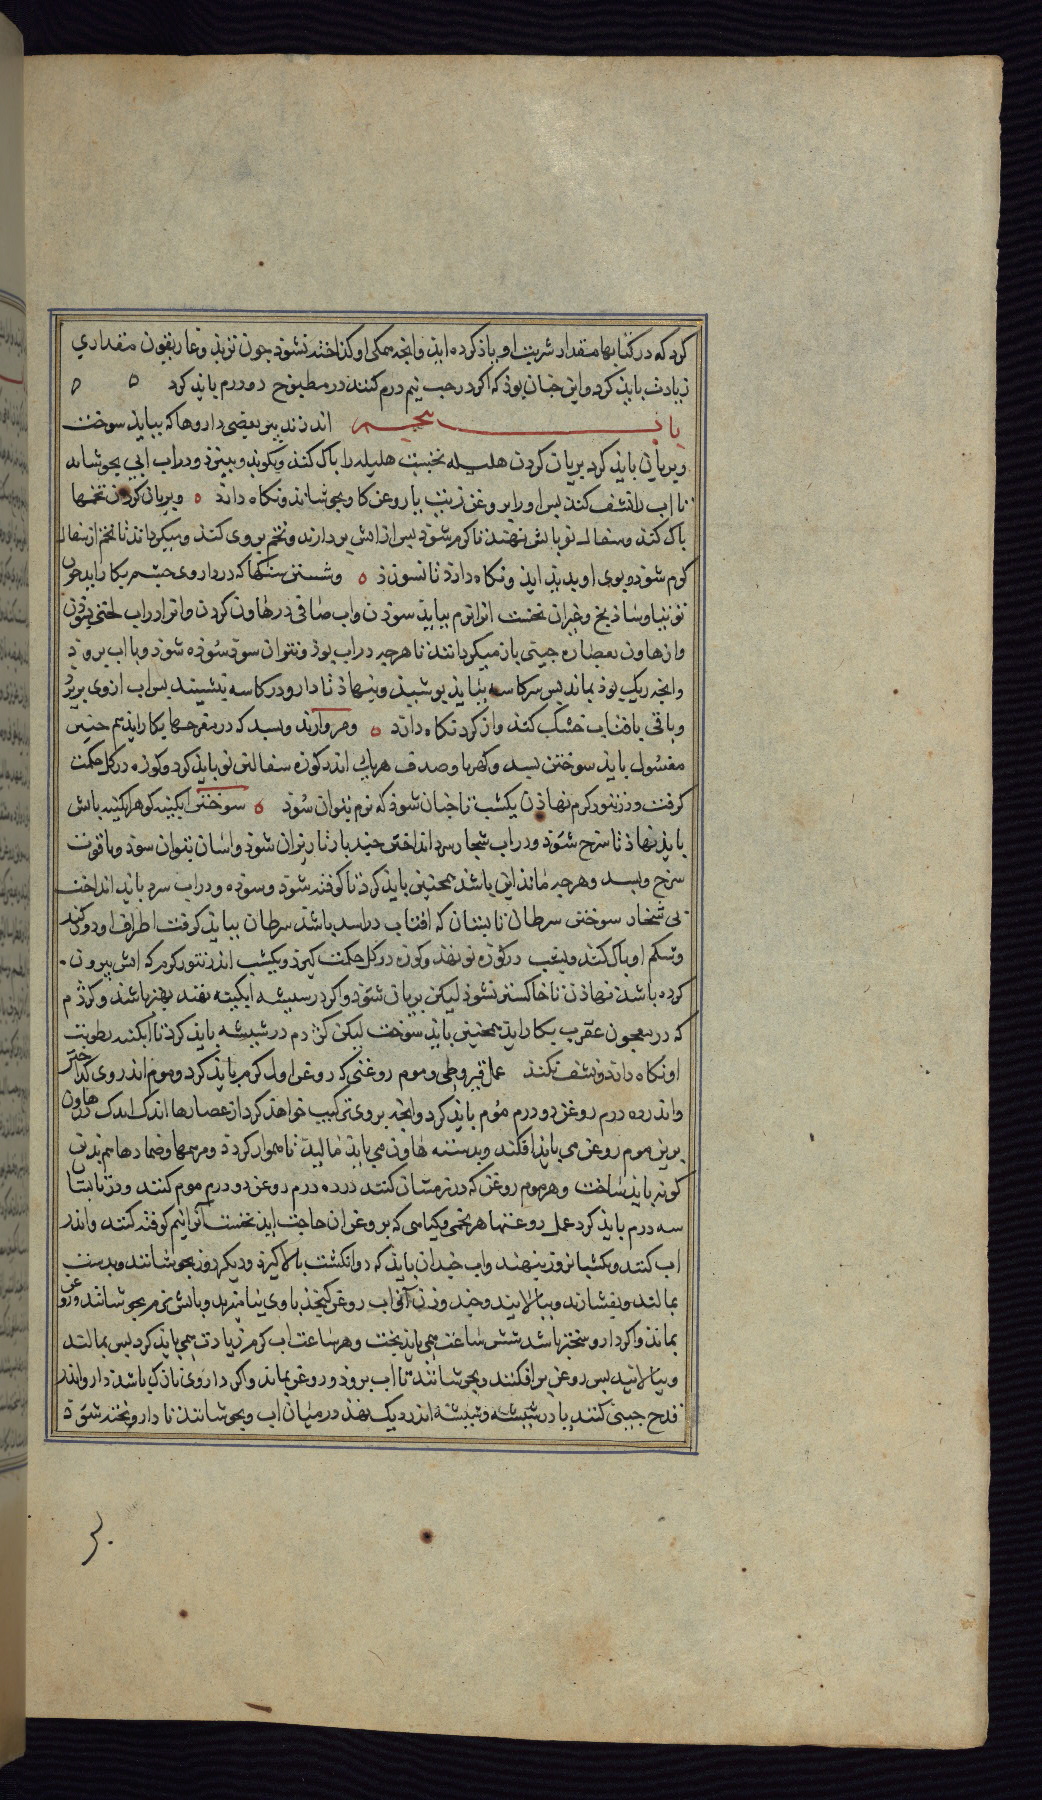 کرد که در کتابها مقدار شربت او یاذ کرده ایذ وانجه همکی او کذاخته نشوذ جون تربذ وغاریقون مقداری
زیادت بایذ کرد واین جنان بوذ که اکر در حب نیم درم کنند در مطبوخ دو درم بایذ کرد ه ه
باب پنجم اندر تدبیر بعضی داروها که ببایذ سوخت
وبریان بایذ کرد بریان کردن هلیله نخست هلیله را باک کنند وبکوبند وببیزند ودر اب ابی بجوشانند
تا اب را نشف کند بس او را بروغن زیت یا روغن کاو بجوشانند ونکاه دارند ه وبریان کردن تخمها
باک کنند وسفال نو باتش نهند تا کرم شوذ بس از اتش بردارند وتخم بر وی کنند ومیکردانند تا تخم از سفال
کرم شوذ وبوی او بدیذ ایذ ونکاه دارد تا نسوزذ ه وشستن سنکها که در داروی جشم بکار ایذ جون
توتیا وشاذنج وغیران نخست انرا نرم ببایذ سوذن واب صافی در هاون کردن وانرا در اب لختی
واز هاون بعصاره جیزی باز میکردانند تا هرجه در اب بوذ ونتوان سوذ سوذه شوذ وبا اب بروذ
وانجه ریک بوذ بماند بس سر کاسه ببایذ بوشیذ وبنهاذ تا دارو در کاسه نشیند بس اب از وی بریزد
وباقی بافتاب خشک کنند واز کرد نکاه دارند ه ومروارید وبسد که در مفرحها بکار ایذ هم جنین
مغسول بایذ سوختن بسد وکهربا وصدف هریک اندر کوزه سفالین نو بایذ کرد وکوزه در کل حکمت
کرفت ودر تنور کرم نهاذن یکشب تا جنان شوذ که نرم بتوان سوذ ه سوختن ابکینه کوهر ابکینه باتش
بایذ نهاذ تا سرخ شوذ ودر اب شخار سرد انداختن جند بار تا ریزان شوذ واسان بتوان سوذ ویاقوت
سرخ وبسد وهرجه مانند این باشد همجنین بایذ کرد تا کوفته شوذ وسوذه ودر اب سرد بایذ انداخت
بی شخار سوختن سرطان تابستان که افتاب در اسد باشد سرطان ببایذ کرفت اطراف او دور کنند
وشکم او باک کنند ودر کوزه نو نهند وکوزه در کل حکمت کیرند ویکشب اندر تنور کرم که اتش بیرون
کرده باشند نهاذن تا خاکستر نشوذ لیکن بریان شوذ واکر در شیشه ابکینه نهند بهتر باشد وکزدم
که در معجون عقرب بکار ایذ همجنین بایذ سوخت لیکن کزدم در شیشه بایذ کرد تا ابکینه رطوبت
او نکاه دارد ونشف نکند عمل قیروطی وموم روغنی که روغن اول کرم بایذ کرد وموم اندر وی کداختن
واندر ده درم روغن دو درم موم بایذ کرد وانجه بر وی ترکیب خواهذ کرد از عصارها اندک اندک در هاون
برین موم روغن می بایذ افکند وبدسته هاون می بایذ مالیذ تا هموار کردذ ومرهمها وضمادها هم بدین
کونه بایذ ساخت وهر موم روغن که در زمستان کنند در ده درم روغن دو درم موم کنند ودر تابستان
سه درم بایذ کرد عمل روغنها هر تخمی وکیاهی که بروغن ان حاجت ایذ نخست انرا نیم کوفته کنند واندر
اب کنند ویکشبانروز بنهند واب جندان بایذ که دو انکشت بالا کیرذ ودیکر روز بجوشانند وبدست
بمالند وبفشارند وببالایند وجند وزن ان اب روغن کنجذ با وی بیامیزند وباتش نرم بجوشانند تا روغن
بماند واکر دارو سخت باشد شش ساعت همی بایذ بخت وهر ساعت اب کرم زیادت همی بایذ کرد بس بمالند
وببالایند بس روغن بر افکنند وبجوشانند تا اب بروذ وروغن بماند واکر داروی نازک باشد دارو اندر
قدح جینی کنند یا در شیشه وشیشه اندر دیک نهند در میان اب وبجوشانند تا دارو بخته شوذ